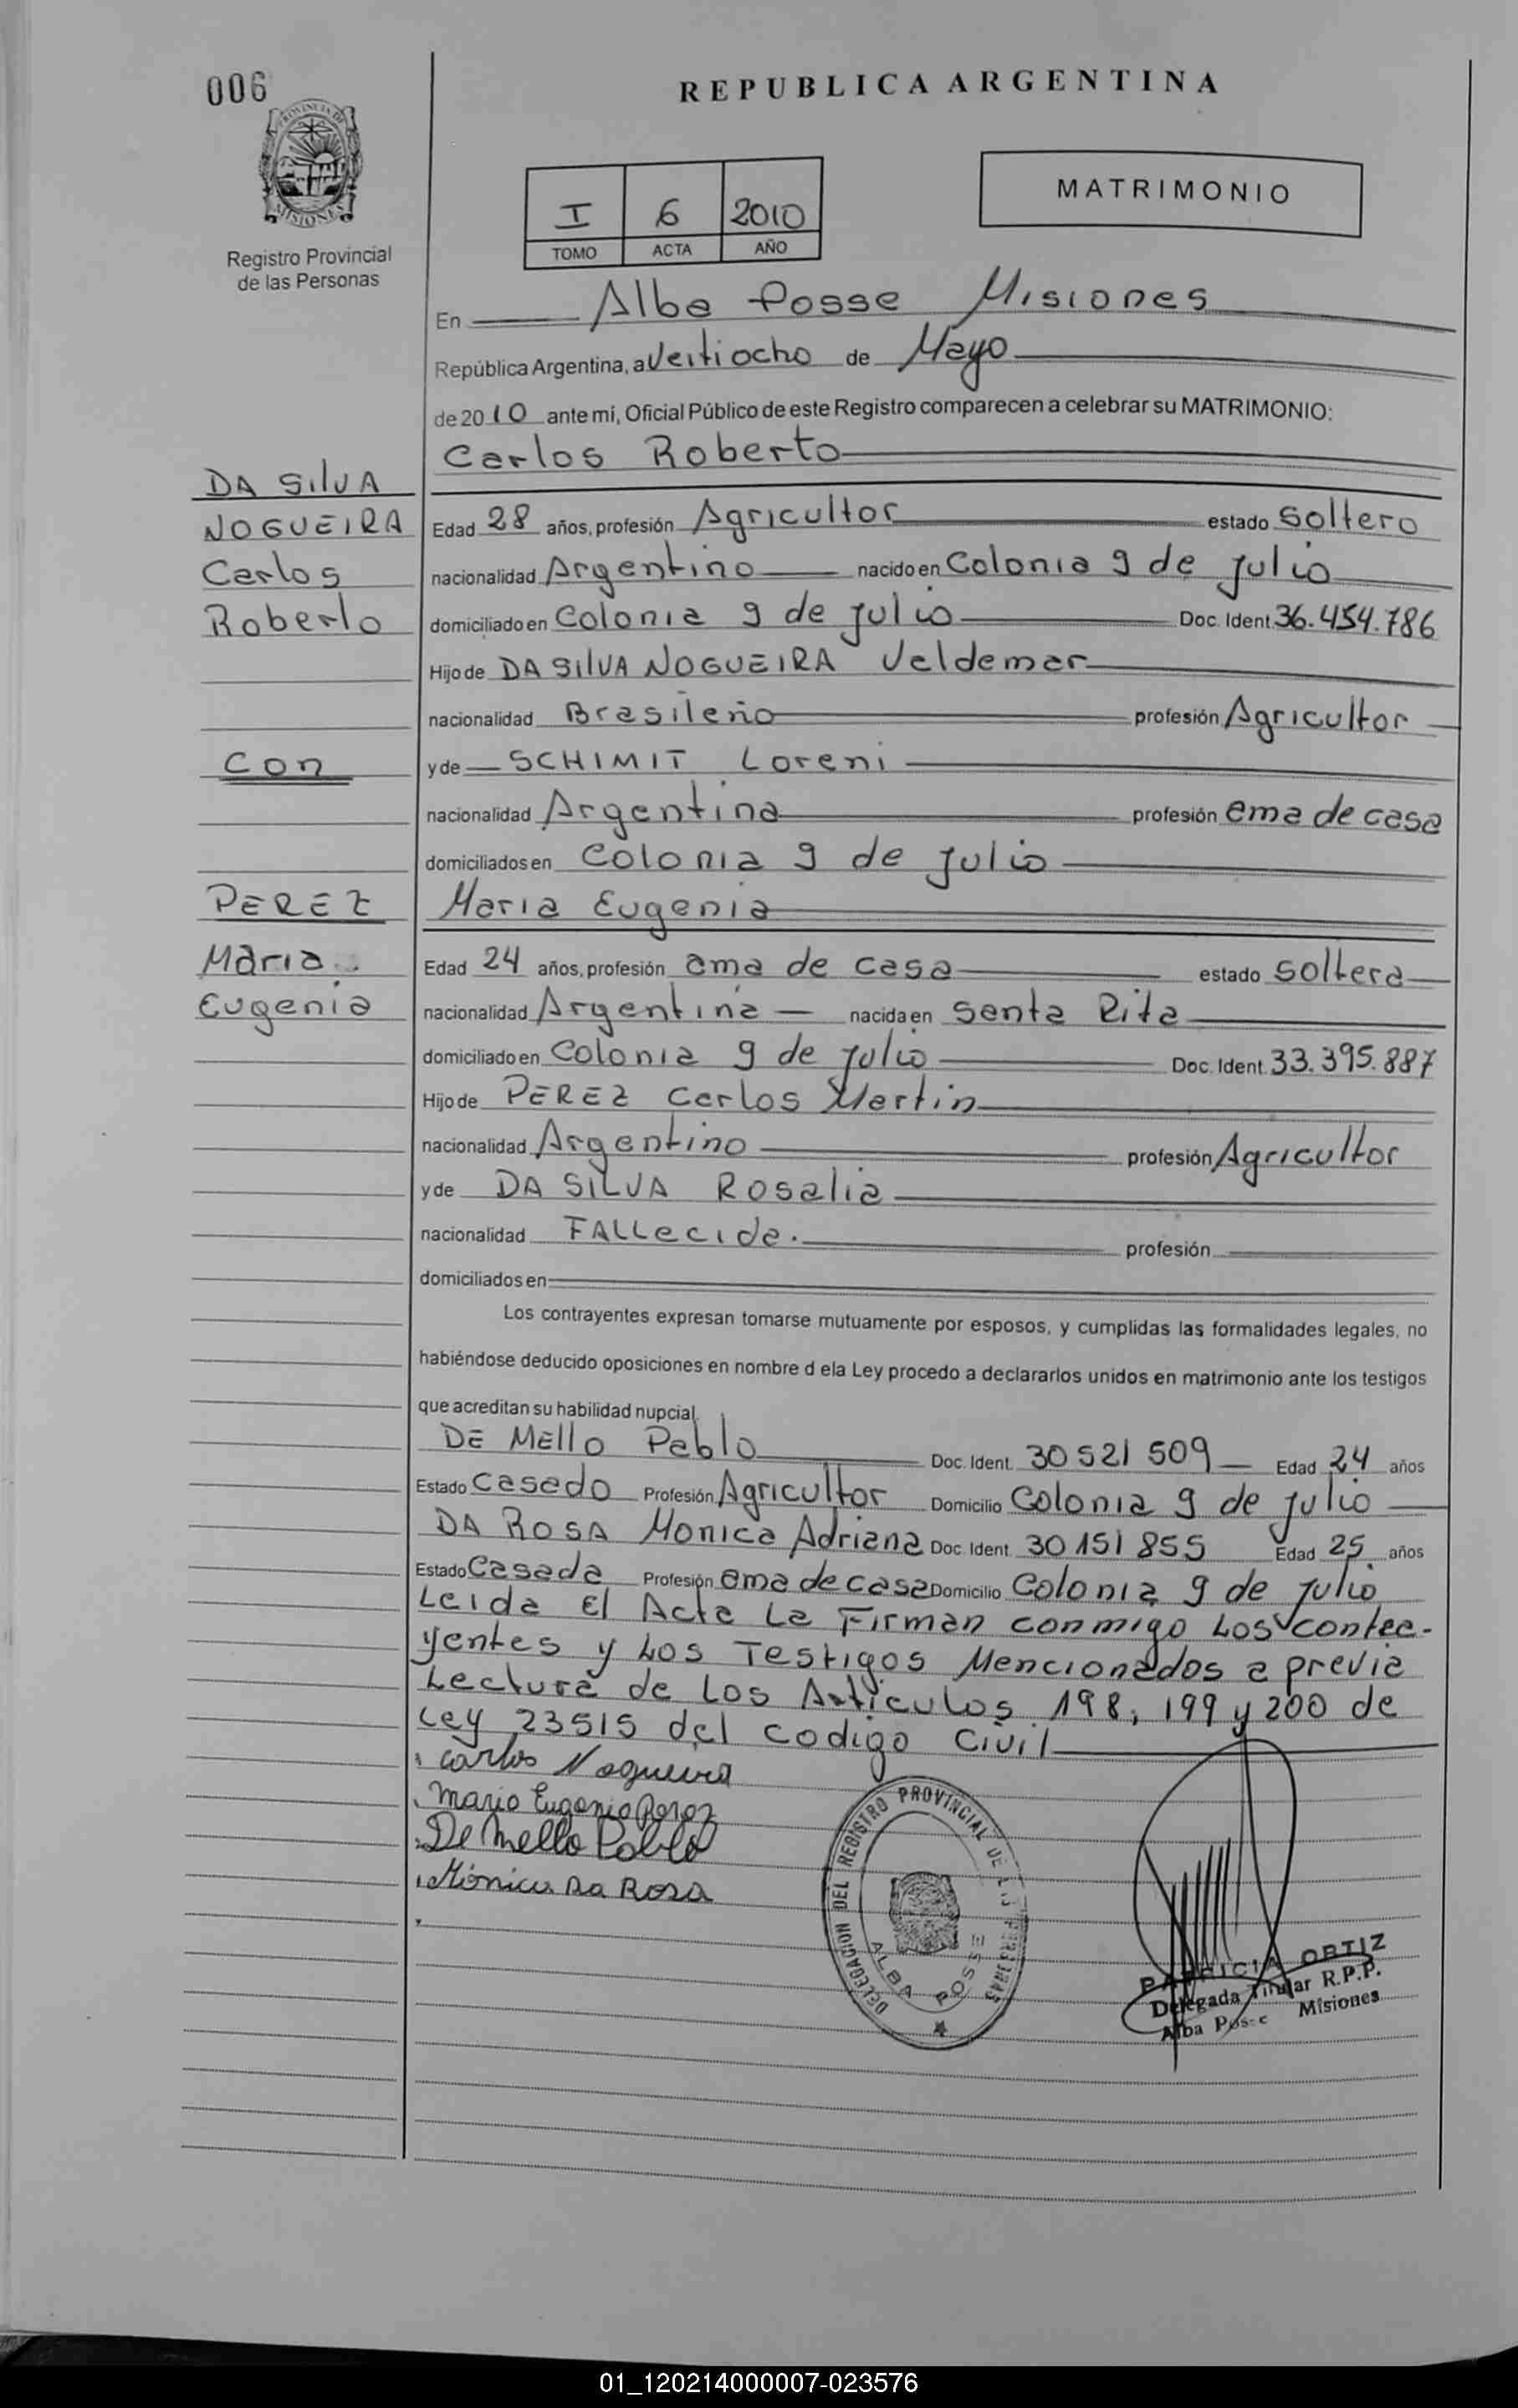 006
REPUBLICA ARGENTINA
PROVINCIA DE MISIONES
Registro Provincial
de las Personas
I 6 2010
TOMO ACTA AÑO
MATRIMONIO
En Alba Posse Misiones
República Argentina, a Veitiocho de Mayo
de 2010 ante mí, Oficial Público de este Registro comparecen a celebrar su MATRIMONIO:
Carlos Roberto
DA SilVA
NOGUEIRA
Carlos
Roberto
Edad 28 años, profesión Agricultor estado Soltero
nacionalidad Argentino nacido en Colonia 9 de julio
domiciliado en Colonia 9 de julio Doc. Ident. 36.454.786
Hijo de DA SilVA NOGUEIRA Valdemar
nacionalidad Brasileño profesión Agricultor
con
y de SCHIMIT Loreni
nacionalidad Argentina profesión ama de casa
domiciliados en Colonia 9 de julio
PEREZ
Maria
Eugenia
Maria Eugenia
Edad 24 años, profesión ama de casa estado Soltera
nacionalidad Argentina nacida en Santa Rita
domiciliado en Colonia 9 de julio Doc. Ident. 33.395.887
Hijo de PEREZ Carlos Martin
nacionalidad Argentino profesión Agricultor
y de DA SILVA Rosalia
nacionalidad FALLecida. profesión
domiciliados en
Los contrayentes expresan tomarse mutuamente por esposos, y cumplidas las formalidades legales, no
habiéndose deducido oposiciones en nombre d ela Ley procedo a declararlos unidos en matrimonio ante los testigos
que acreditan su habilidad nupcial.
DE Mello Pablo Doc. Ident. 30 521 509 Edad 24 años
Estado Casado Profesión Agricultor Domicilio Colonia 9 de julio
DA ROSA Monica Adriana Doc. Ident. 30 151 855 Edad 25 años
Estado Casada Profesión ama de casa Domicilio Colonia 9 de julio
Leida El Acta La Firman conmigo Los contra-
yentes y Los Testigos Mencionados a previa
Lectura de Los Articulos 198, 199 y 200 de
Ley 23515 del codigo Civil
Carlos Nogueira
Maria Eugenia Perez
De Mello Pablo
Mónica Da Rosa
DELEGACION DEL REGISTRO PROVINCIAL DE LAS PERSONAS
ALBA POSSE
PATRICIA ORTIZ
Delegada Titular R.P.P.
Alba Posse Misiones
01_120214000007-023576